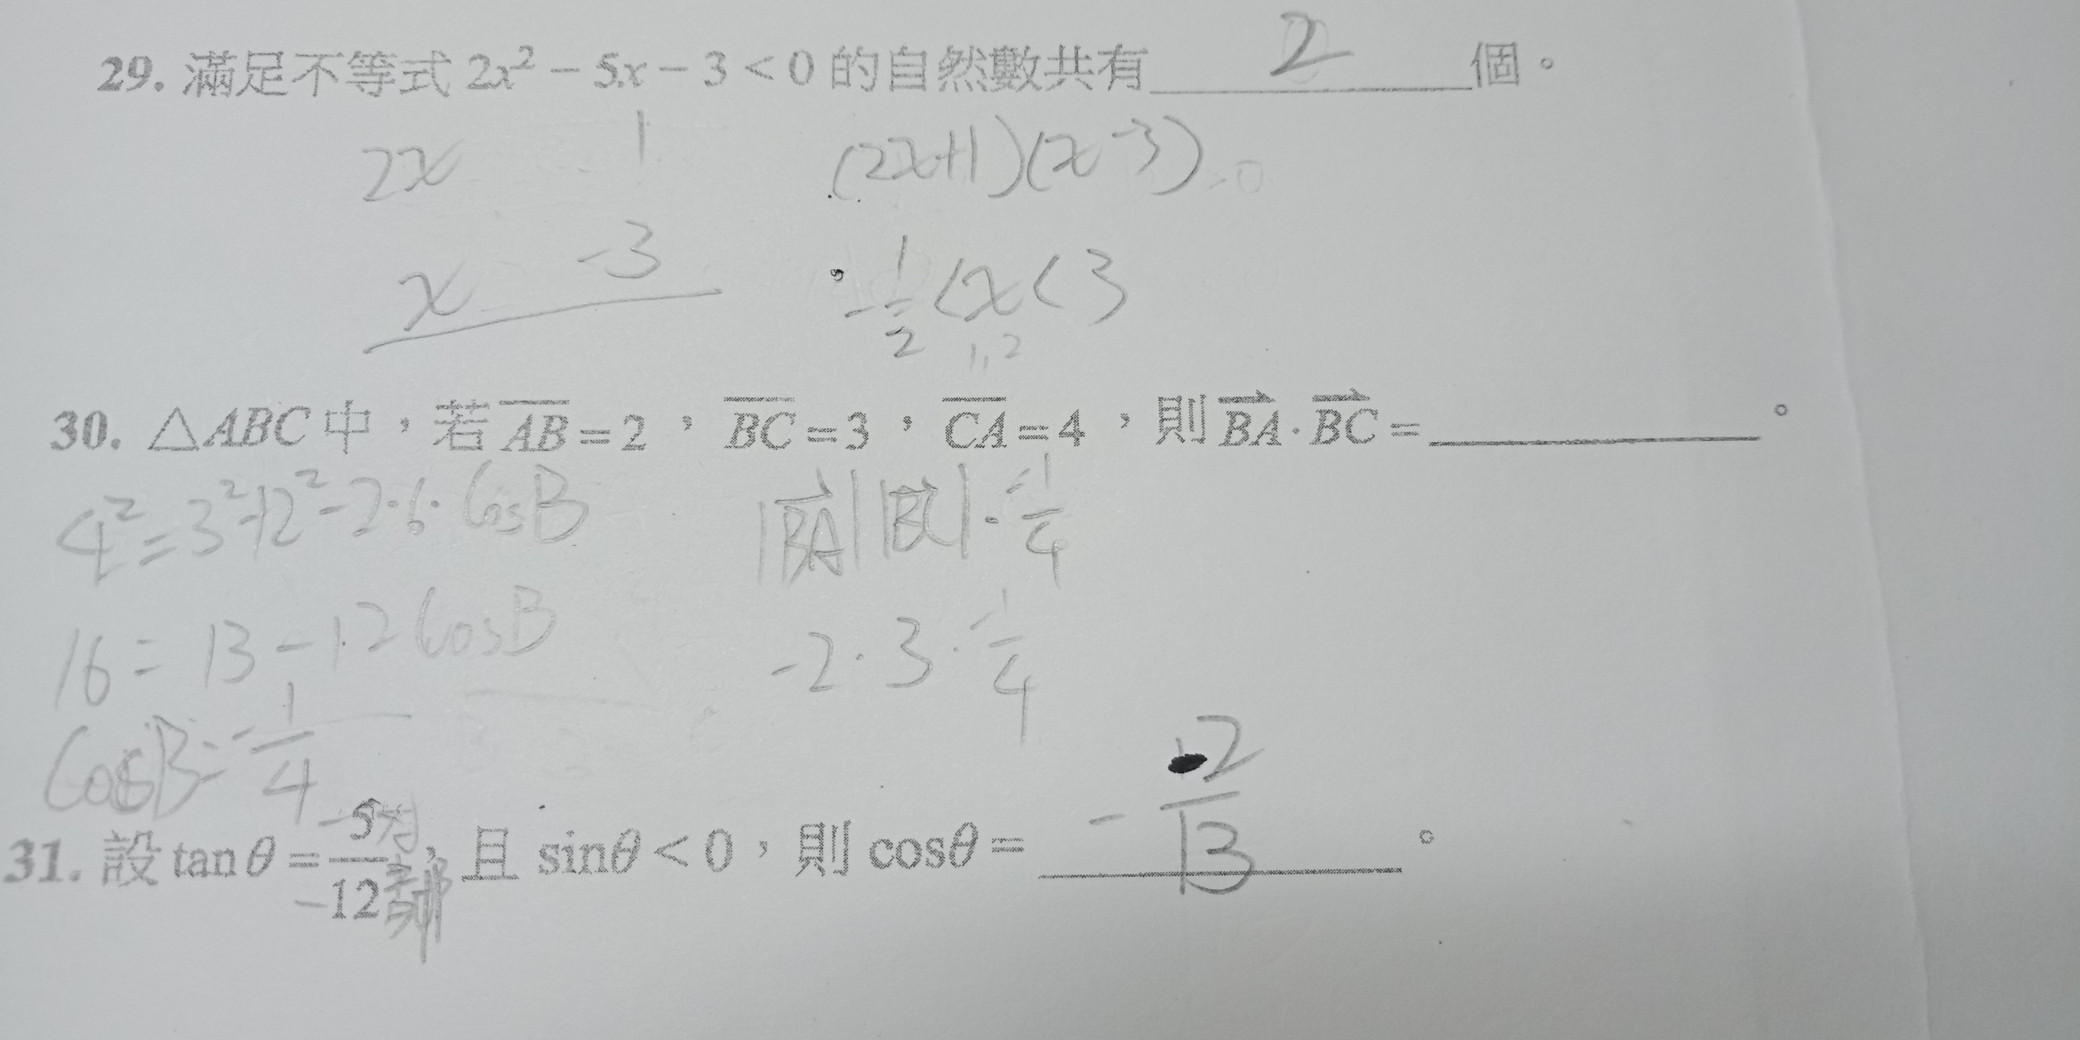 29. 滿足不等式 2x² − 5x − 3 < 0 的自然數共有 2 個。
2x 1 (2x+1)(x-3)
x -3 -1/2 < x < 3
1, 2
30. △ABC 中，若 AB = 2，BC = 3，CA = 4，則 BA · BC = ______。
4² = 3² + 2² - 2·6·cosB |BA| |BC| · -1/4
16 = 13 - 12 cosB -2 · 3 · -1/4
cosB = -1/4
31. 設 tanθ = -5/-12，且 sinθ < 0，則 cosθ = -12/13。